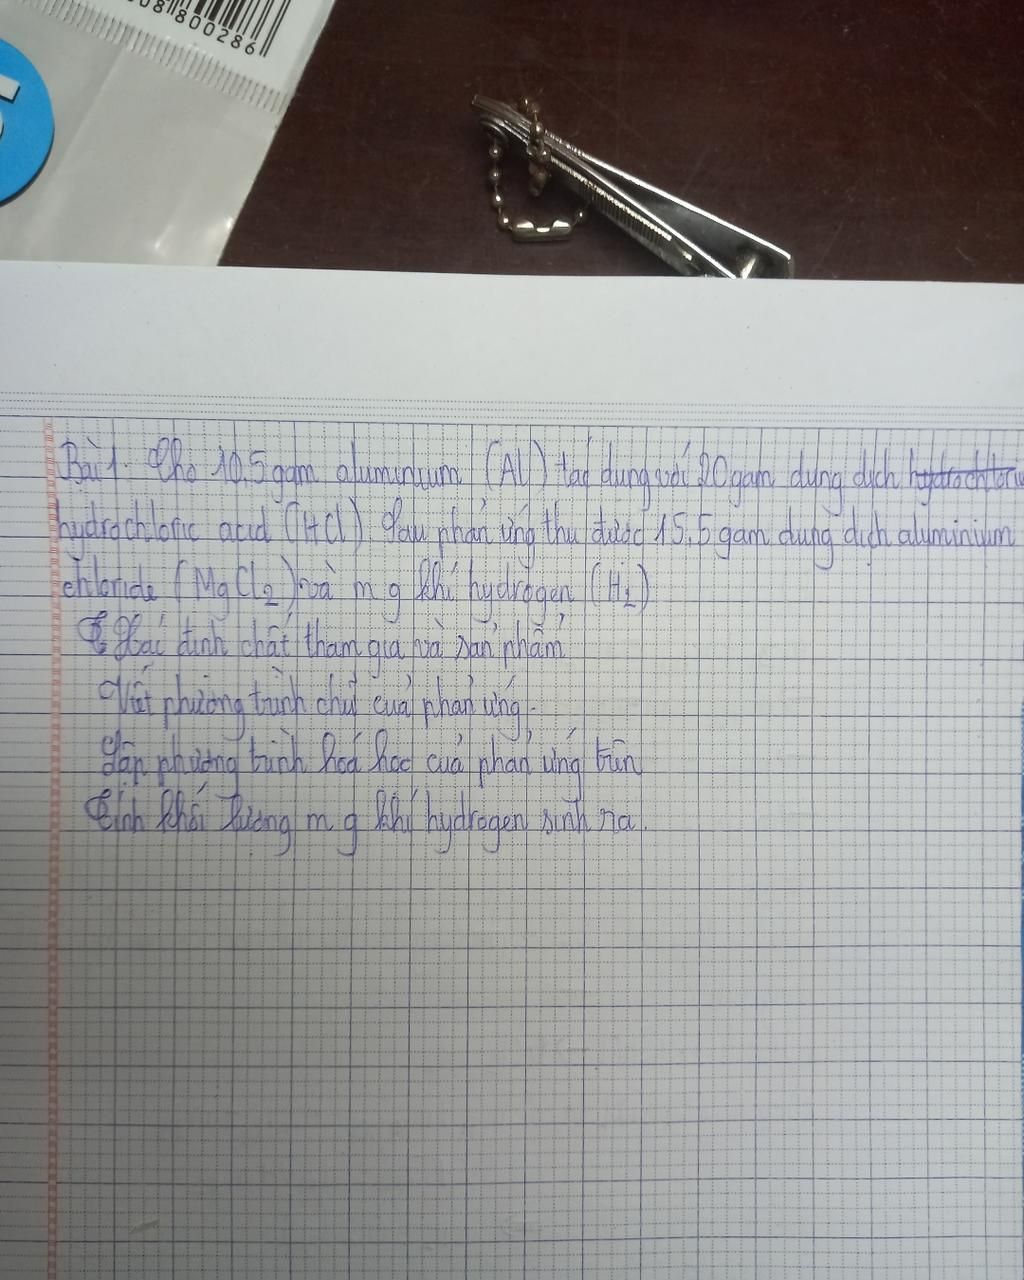 800286
Bài 1. Cho 10.5 gam aluminium (Al) tác dụng với 20 gam dung dịch
hydrochloric acid (HCl). Sau phản ứng thu được 15,5 gam dung dịch aluminium
chloride (MgCl2) và m g khí hydrogen (H2)
Xác định chất tham gia và sản phẩm
Viết phương trình chữ của phản ứng.
Lập phương trình hoá học của phản ứng trên
Tính khối lượng m g khí hydrogen sinh ra.